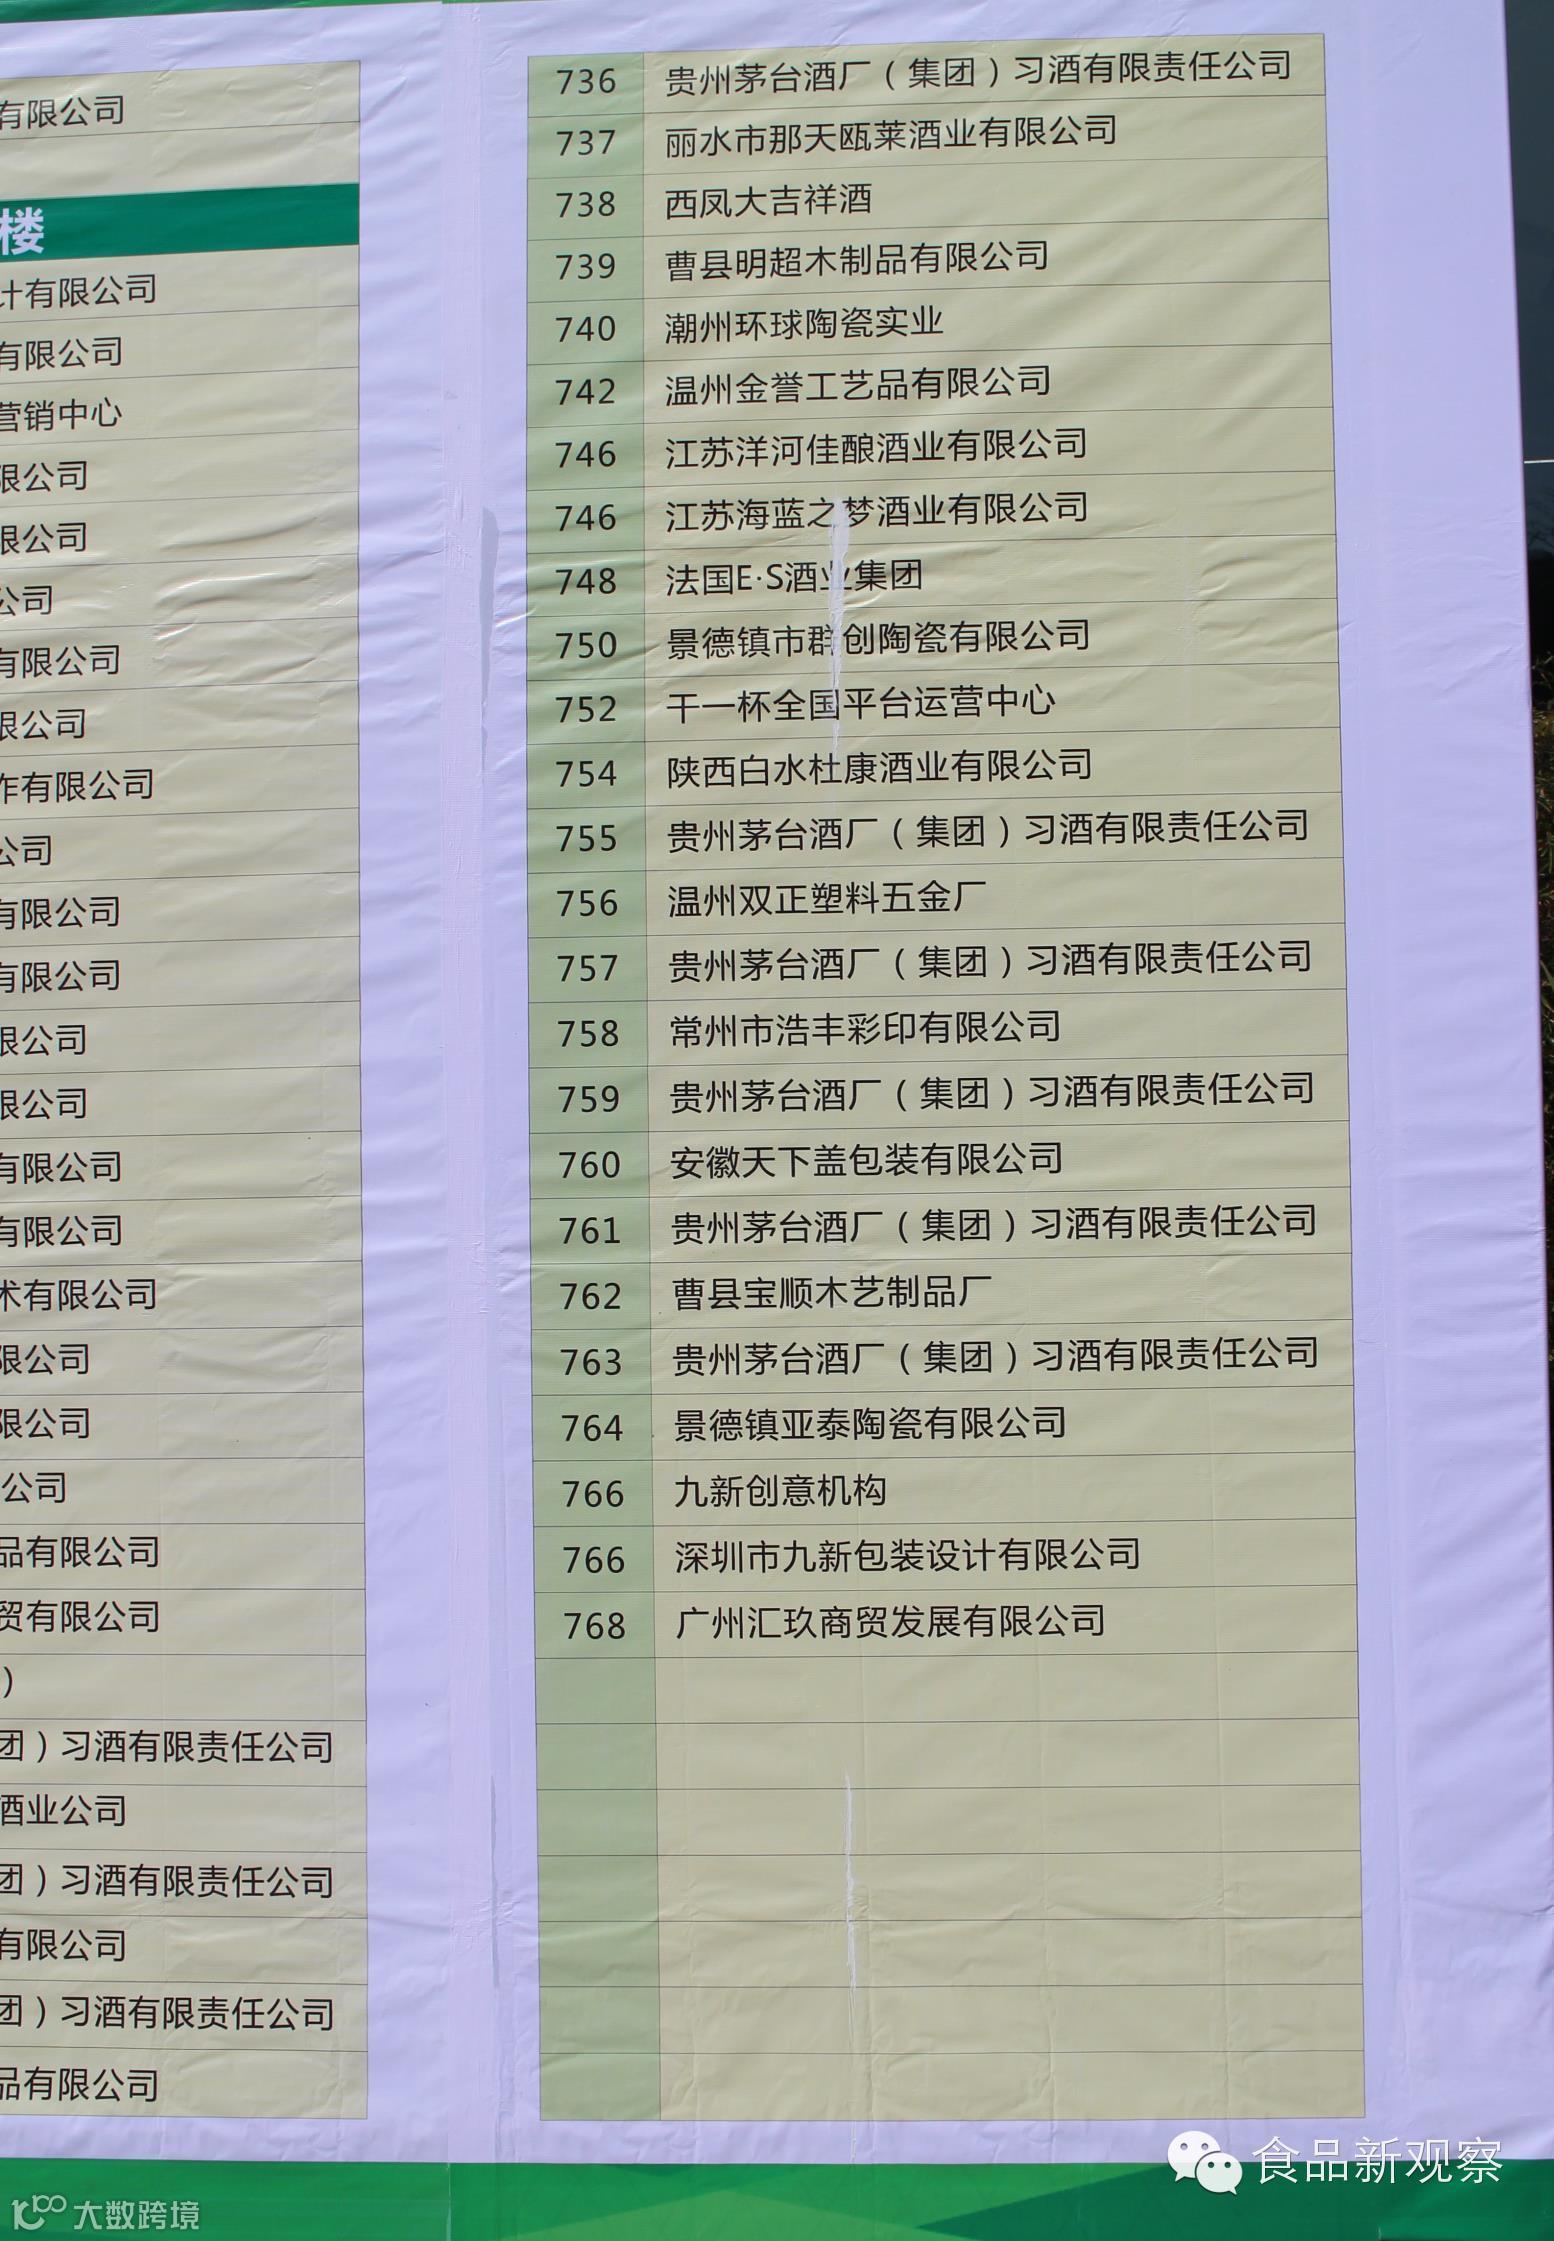 有限公司
楼
计有限公司
有限公司
营销中心
限公司
限公司
公司
有限公司
限公司
作有限公司
公司
有限公司
有限公司
限公司
限公司
有限公司
有限公司
术有限公司
限公司
限公司
公司
品有限公司
贸有限公司
）
团）习酒有限责任公司
酒业公司
团）习酒有限责任公司
有限公司
团）习酒有限责任公司
品有限公司
736 贵州茅台酒厂（集团）习酒有限责任公司
737 丽水市那天瓯莱酒业有限公司
738 西凤大吉祥酒
739 曹县明超木制品有限公司
740 潮州环球陶瓷实业
742 温州金誉工艺品有限公司
746 江苏洋河佳酿酒业有限公司
746 江苏海蓝之梦酒业有限公司
748 法国E·S酒业集团
750 景德镇市群创陶瓷有限公司
752 干一杯全国平台运营中心
754 陕西白水杜康酒业有限公司
755 贵州茅台酒厂（集团）习酒有限责任公司
756 温州双正塑料五金厂
757 贵州茅台酒厂（集团）习酒有限责任公司
758 常州市浩丰彩印有限公司
759 贵州茅台酒厂（集团）习酒有限责任公司
760 安徽天下盖包装有限公司
761 贵州茅台酒厂（集团）习酒有限责任公司
762 曹县宝顺木艺制品厂
763 贵州茅台酒厂（集团）习酒有限责任公司
764 景德镇亚泰陶瓷有限公司
766 九新创意机构
766 深圳市九新包装设计有限公司
768 广州汇玖商贸发展有限公司
食品新观察
大数跨境